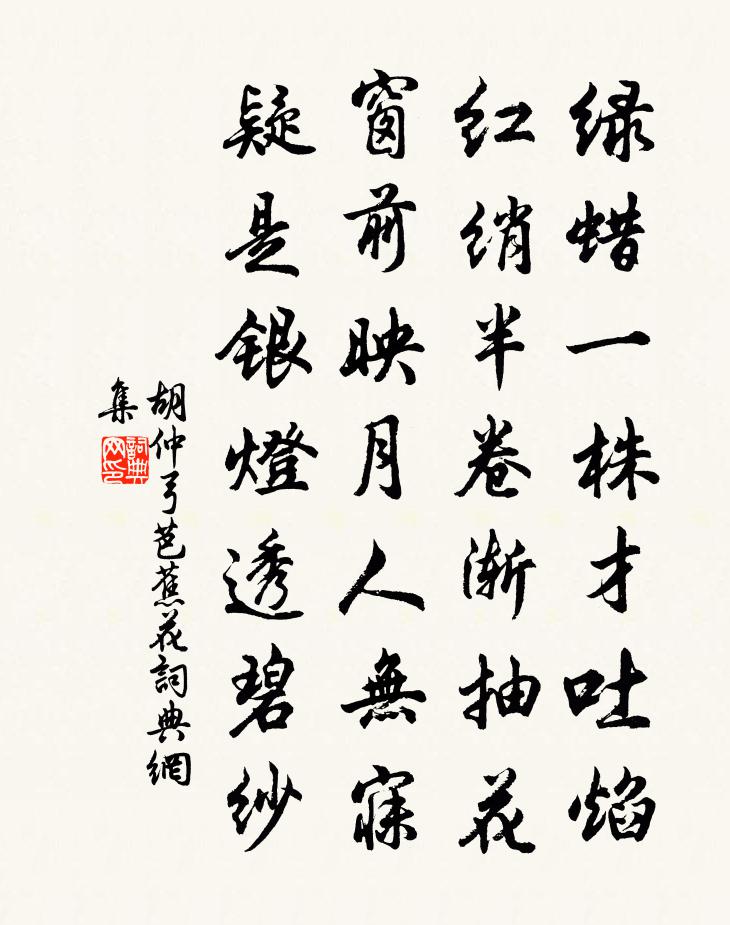 绿蜡一株才吐焰
红绡半卷渐抽花
窗前映月人無寐
疑是銀燈透碧纱
胡仲弓芭蕉花詞典網
集
詞典网印